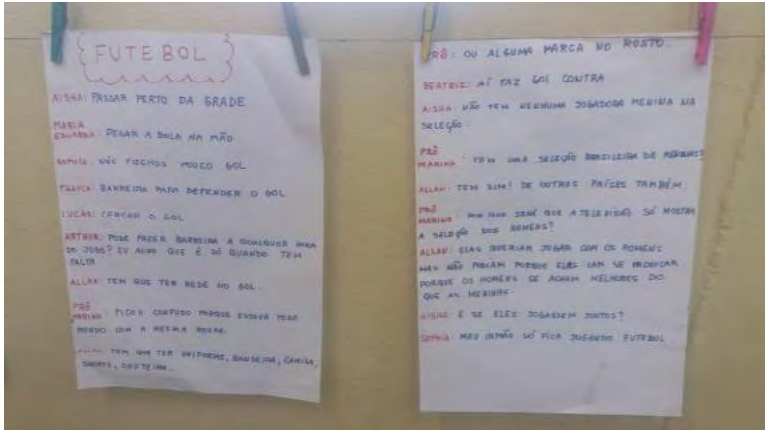 FUTEBOL
AISHA: PASSAR PERTO DA GRADE
MARIA
EDUARDA: PEGAR A BOLA NA MÃO
SOPHIA: NÓS FIZEMOS POUCO GOL
BARREIRA PARA DEFENDER O GOL
LUCAS: CERCAR O GOL
ARTHUR: PODE FAZER BARREIRA A QUALQUER HORA
DO JOGO? EU ACHO QUE É SÓ QUANDO TEM
FALTA.
ALLAN: TEM QUE TER REDE NO GOL.
PRÔ
MARINA: FICOU CONFUSO PORQUE ESTAVA TODO
MUNDO COM A MESMA ROUPA.
ALLAN: TEM QUE TER UNIFORME, BANDEIRA, CAMISA,
SHORTS, CHUTEIRA.
PRÔ: OU ALGUMA MARCA NO ROSTO.
BEATRIZ: AÍ FAZ GOL CONTRA
AISHA: NÃO TEM NENHUMA JOGADORA MENINA NA
SELEÇÃO.
PRÔ
MARINA: TEM UMA SELEÇÃO BRASILEIRA DE MENINAS?
ALLAN: TEM SIM! DE OUTROS PAÍSES TAMBÉM.
PRÔ
MARINA: POR QUE SERÁ QUE A TELEVISÃO SÓ MOSTRA
A SELEÇÃO DOS HOMENS?
ALLAN: ELAS QUERIAM JOGAR COM OS HOMENS
MAS NÃO PODIAM PORQUE ELAS VAM SE MACHUCAR
PORQUE OS HOMENS SE ACHAM MELHORES DO
QUE AS MENINAS.
AISHA: E SE ELES JOGASSEM JUNTOS?
SOPHIA: MEU IRMÃO SÓ FICA JOGANDO FUTEBOL.